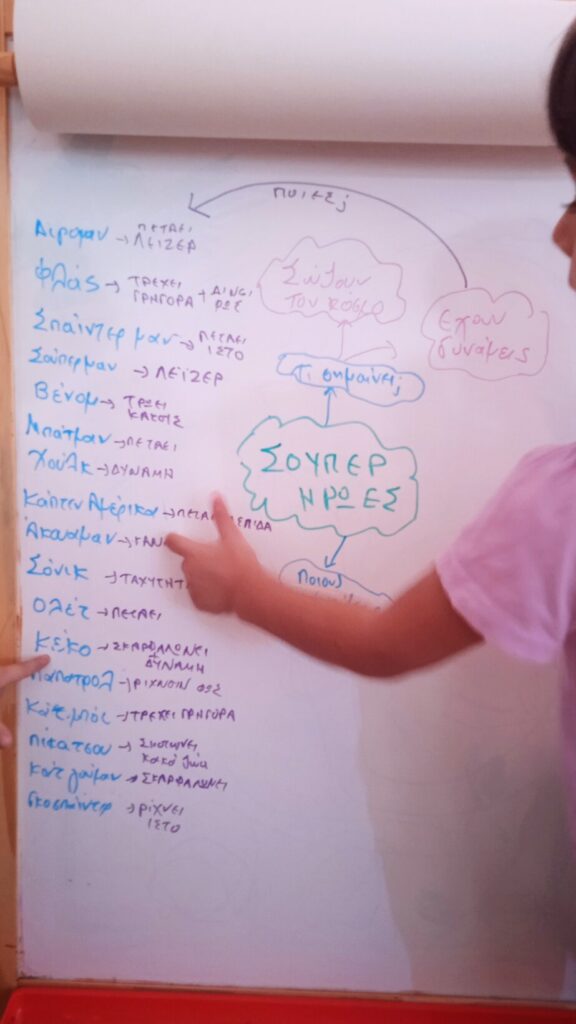 ποιες;
Αιρομαν → ΠΕΤΑΕΙ
ΛΕΙΖΕΡ
Φλάς → ΤΡΕΧΕΙ
ΓΡΗΓΟΡΑ + ΔΙΝΕΙ
ΦΩΣ
Σπάιντερ μαν → ΠΕΤΑΕΙ
ΙΣΤΟ
Σούπερμαν → ΛΕΪΖΕΡ
Βένομ → ΤΡΩΕΙ
ΚΑΚΟΥΣ
Μπάτμαν → ΠΕΤΑΕΙ
Χούλκ → ΔΥΝΑΜΗ
Κάπτεν Αμέρικα →
Ακουαμαν →
Σόνικ → ΤΑΧΥΤΗΤ
Ολέτ → ΠΕΤΑΕΙ
Κέκο → ΣΚΑΡΦΑΛΩΝΕΙ
ΔΥΝΑΜΗ
→ ΡΙΧΝΟΥΝ ΦΩΣ
Κατ.μπόι → ΤΡΕΧΕΙ ΓΡΗΓΟΡΑ
Πίκατσου → Σκοτώνει
κακά ζώα
→ ΣΚΑΡΦΑΛΩΝΕΙ
Γκοσπάιντερ → ΡΙΧΝΕΙ
ΙΣΤΟ
Σώζουν
τον κόσμο
Εχουν
δυνάμεις
Τι σημαίνει;
ΣΟΥΠΕΡ
ΗΡΩΕΣ
Ποιους